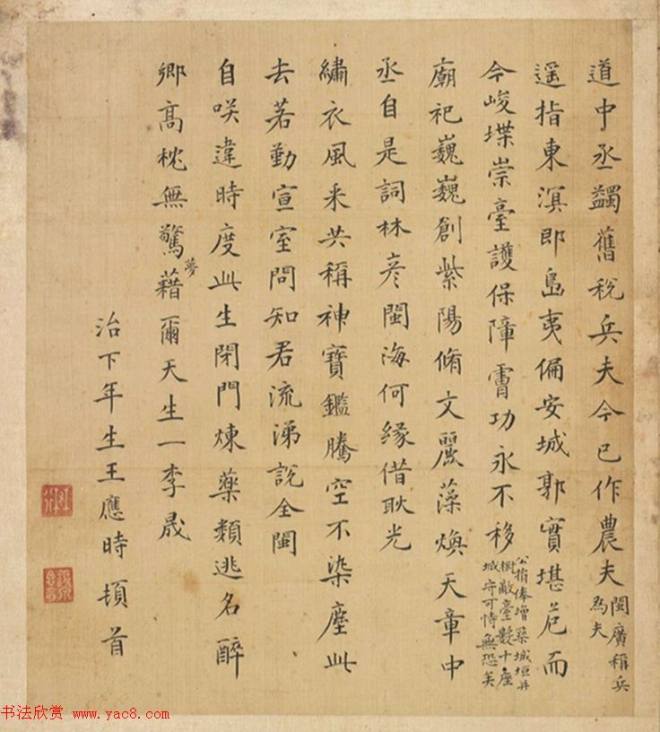 道中丞蠲舊税兵夫今已作農夫閩廣稱兵為夫
遥指東溟即島夷偏安城郭實堪危而
今峻堞崇臺護保障膚功永不移公捐俸增築城垣并樹敵臺數十座城守可恃無恐矣
廟祀巍巍創紫陽脩文麗藻煥天章中
丞自是詞林彥閩海何緣借耿光
繡衣風采共稱神寶鑑騰空不染塵此
去若勤宣室問知君流涕說全閩
自咲違時度此生閉門煉藥類逃名醉
鄉高枕無驚夢藉爾天生一李晟
治下年生王應時頓首
书法欣赏 www.yac8.com